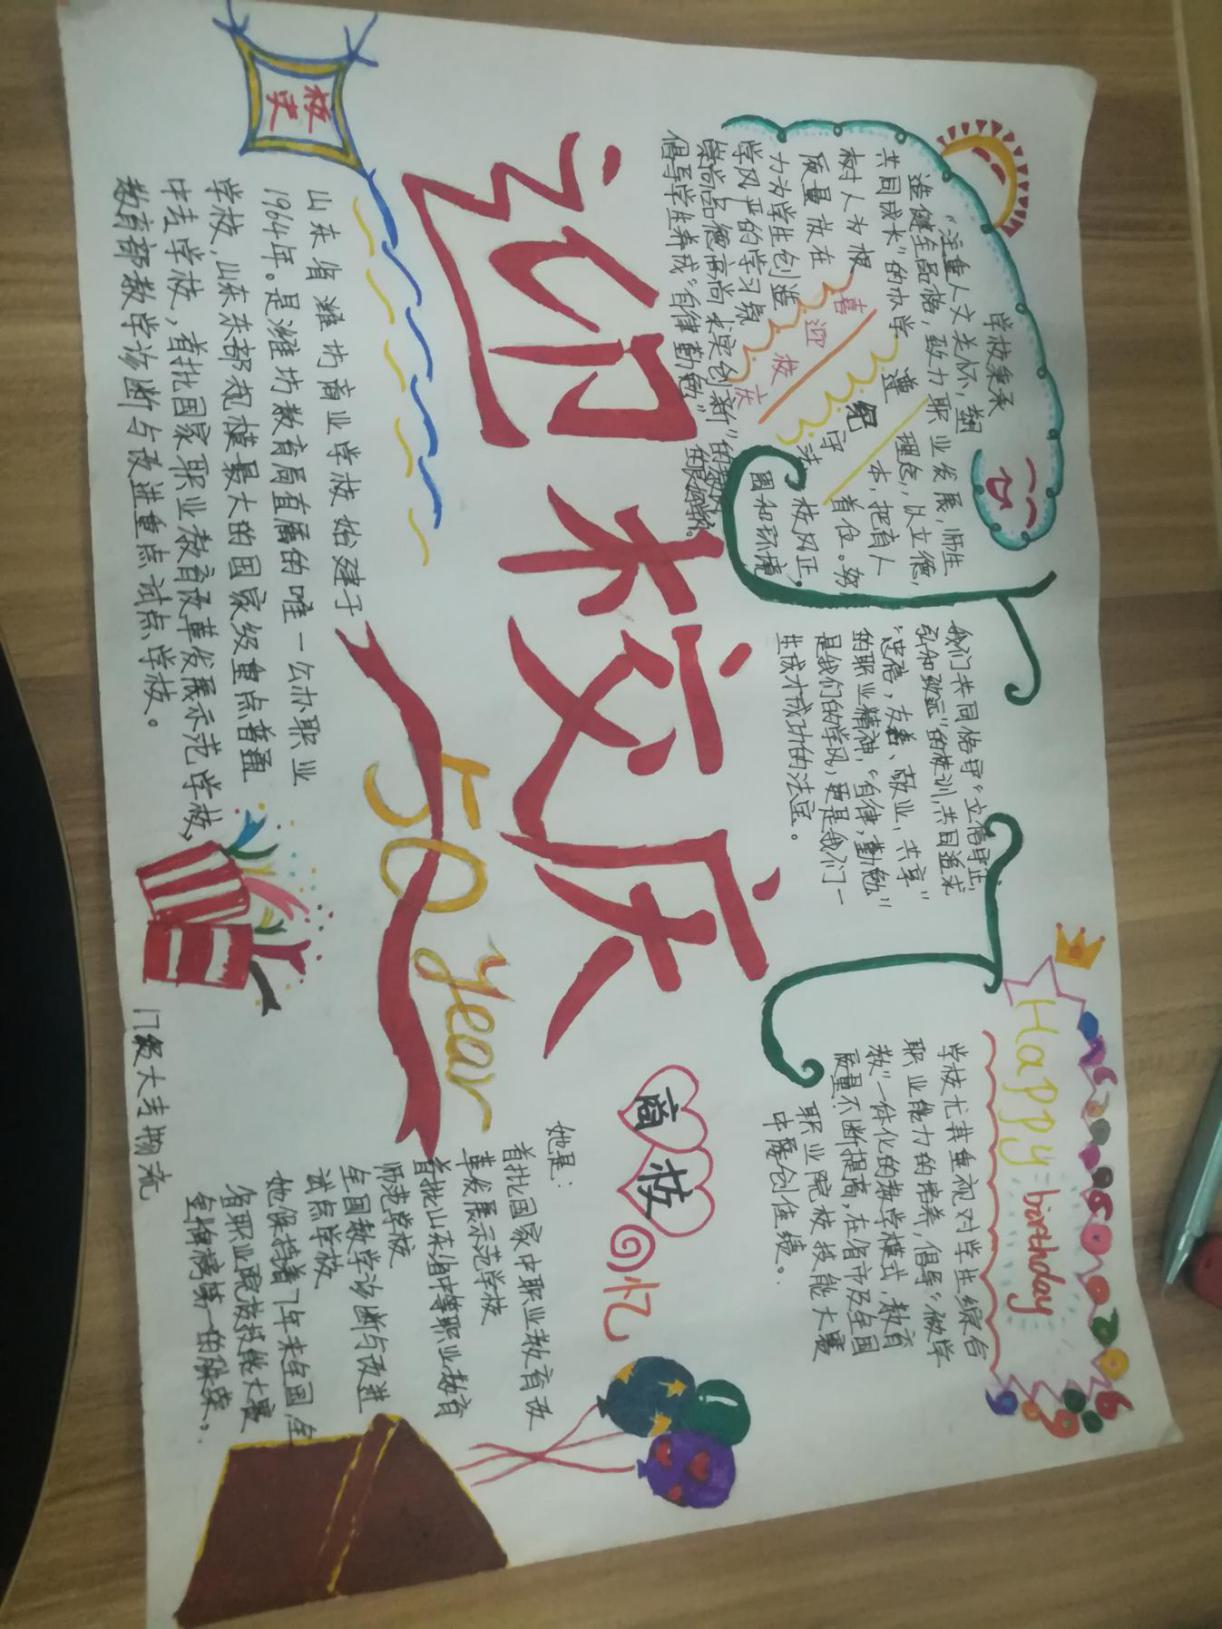 学校秉承
“注重人文关怀，塑
造健全品格，致力职业发展，师生
共同成长”的办学理念，以立德
树人为根本，把育人
质量放在首位。努
力为学生创造校风正，
学风严的学习氛围和环境
崇尚品德高尚 求实创新”的教风，
倡导学生养成“自律勤勉”的良好学风。
喜迎校庆
遵纪守法
我们共同恪守“立信守正，
弘和致远”的校训，共同追求
“忠信，友善、敬业，共享”
的职业精神，“自律，勤勉”
是我们的学风，更是我们一
生成才成功的法宝。
Happy birthday
学校尤其重视对学生综合
职业能力的培养，倡导“做学
教”一体化的教学模式，教育
质量不断提高，在省市及全国
职业院校技能大赛
中屡创佳绩。
迎校庆
50 year
商校回忆
校史
山东省潍坊商业学校 始建于
1964年。是潍坊教育局直属的唯一公办职业
学校，山东东部规模最大的国家级重点普通
中专学校，首批国家职业教育改革发展示范学校，
教育部教学诊断与改进重点试点学校。
她是：
首批国家中职业教育改
革发展示范学校
首批山东省中等职业教育
师范学校
全国教学诊断与改进
试点学校
她保持着7年来全国 全
省职业院校技能大赛
金牌榜第一的殊荣。
17级大专物流